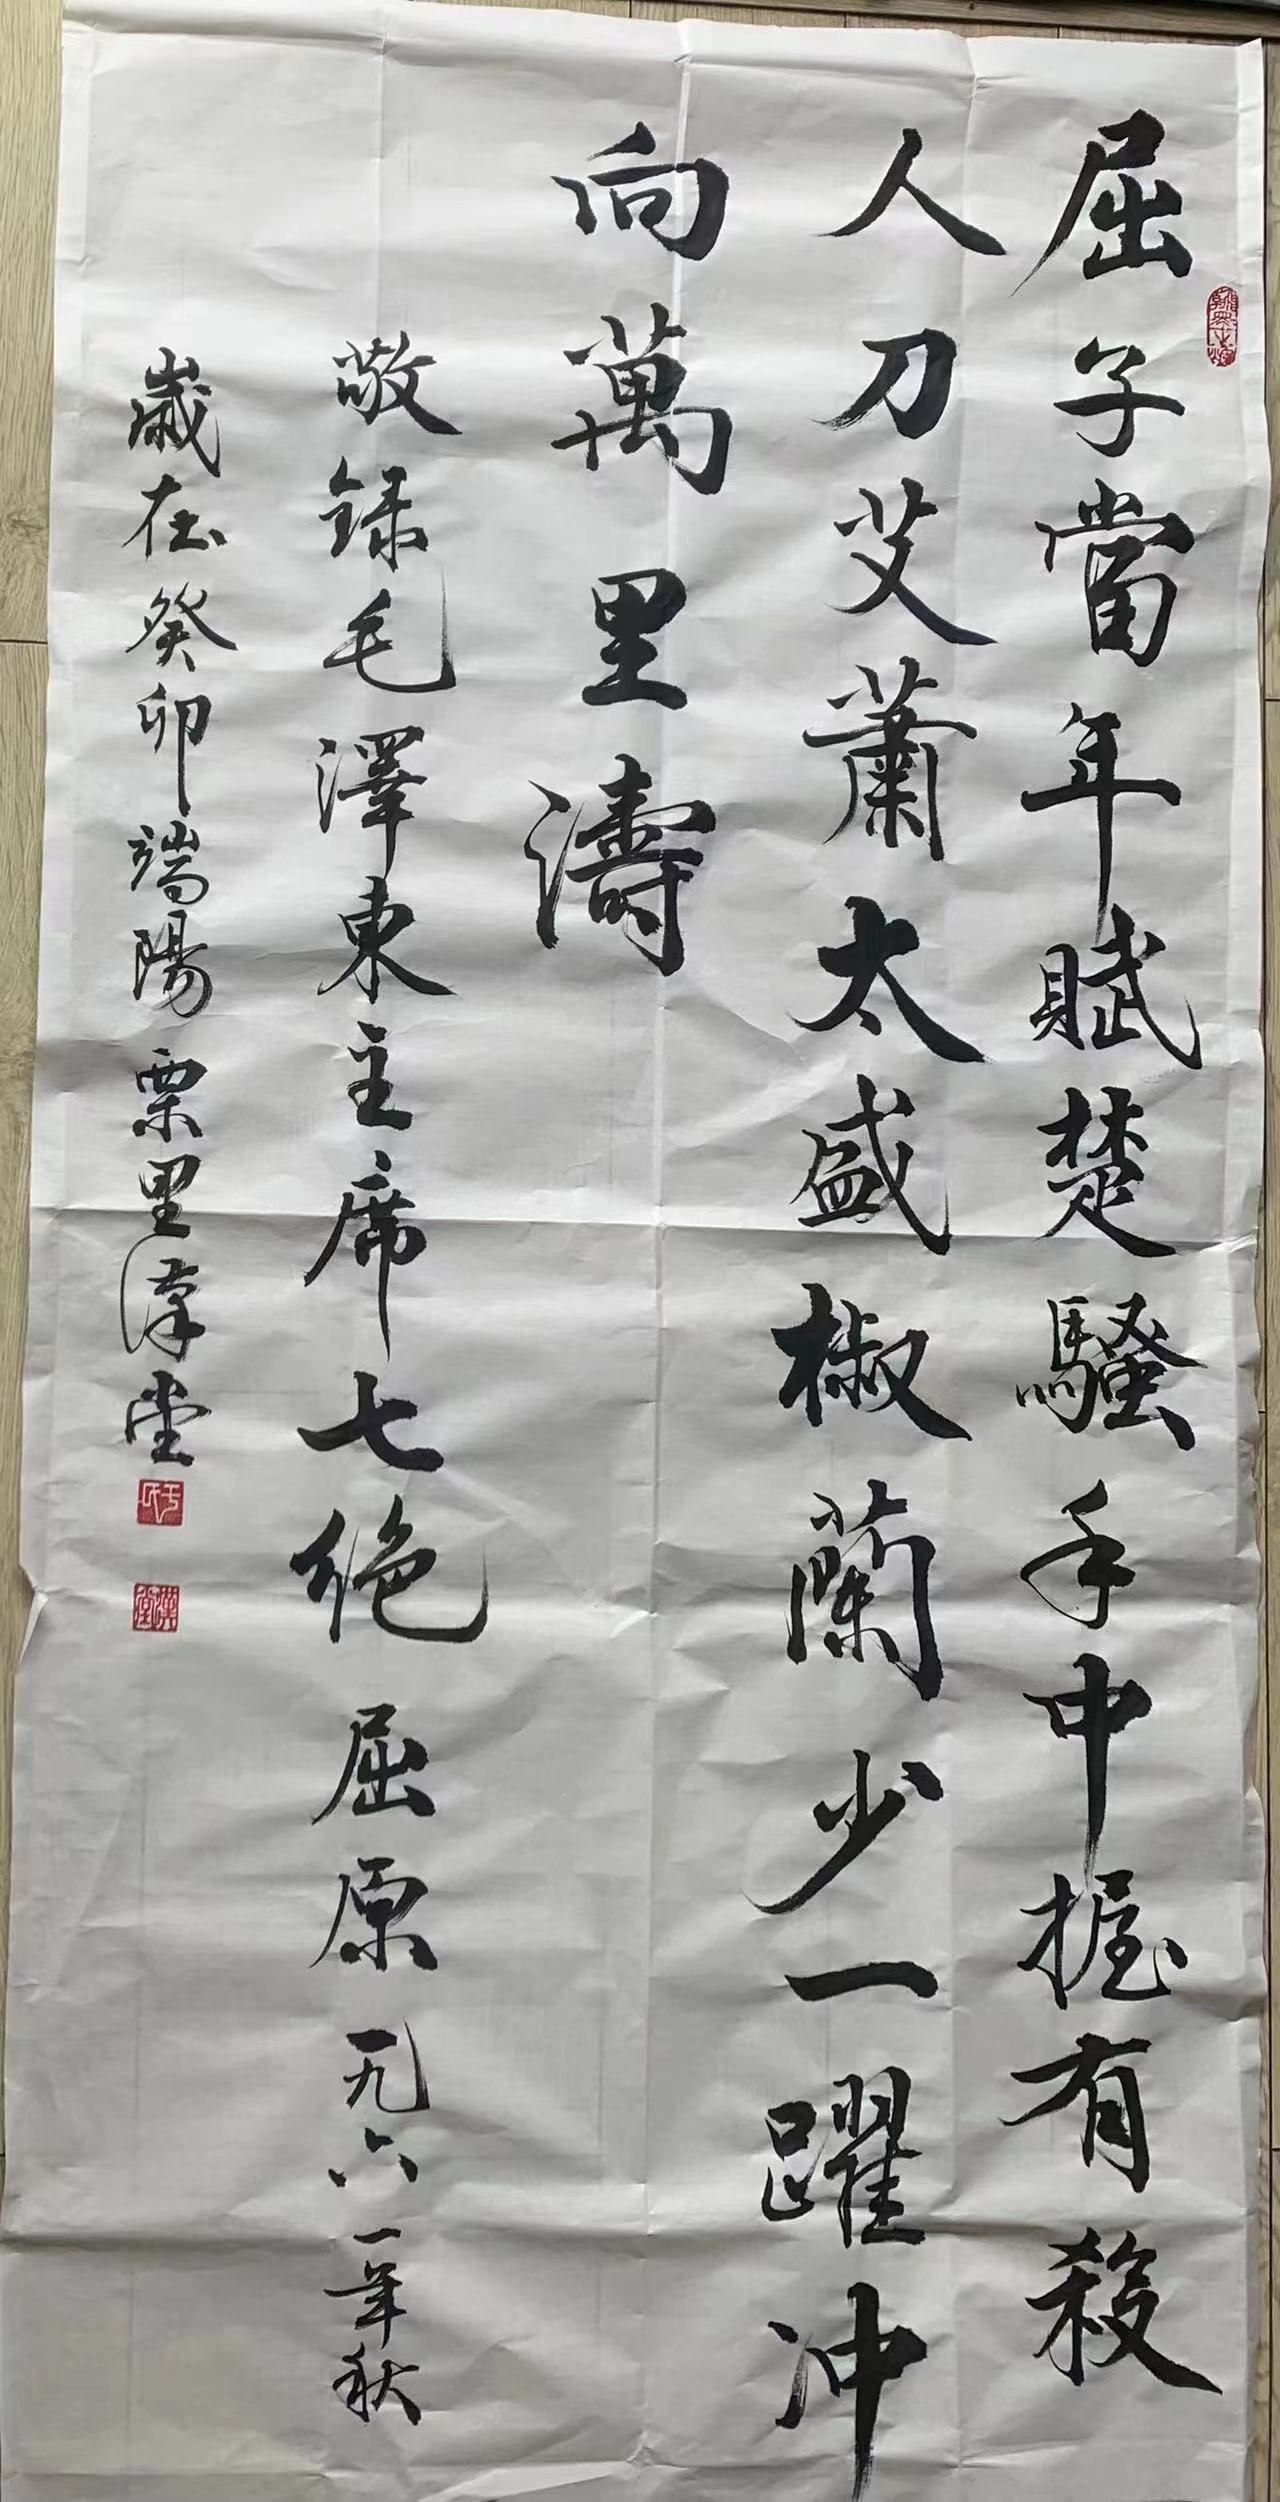 屈子當年賦楚騷手中握有殺
人刀艾蕭太盛椒蘭少一躍冲
向萬里濤
敬録毛澤東主席七絶 屈原 一九六一年秋
歲在癸卯端陽栗里漢堂
漢堂